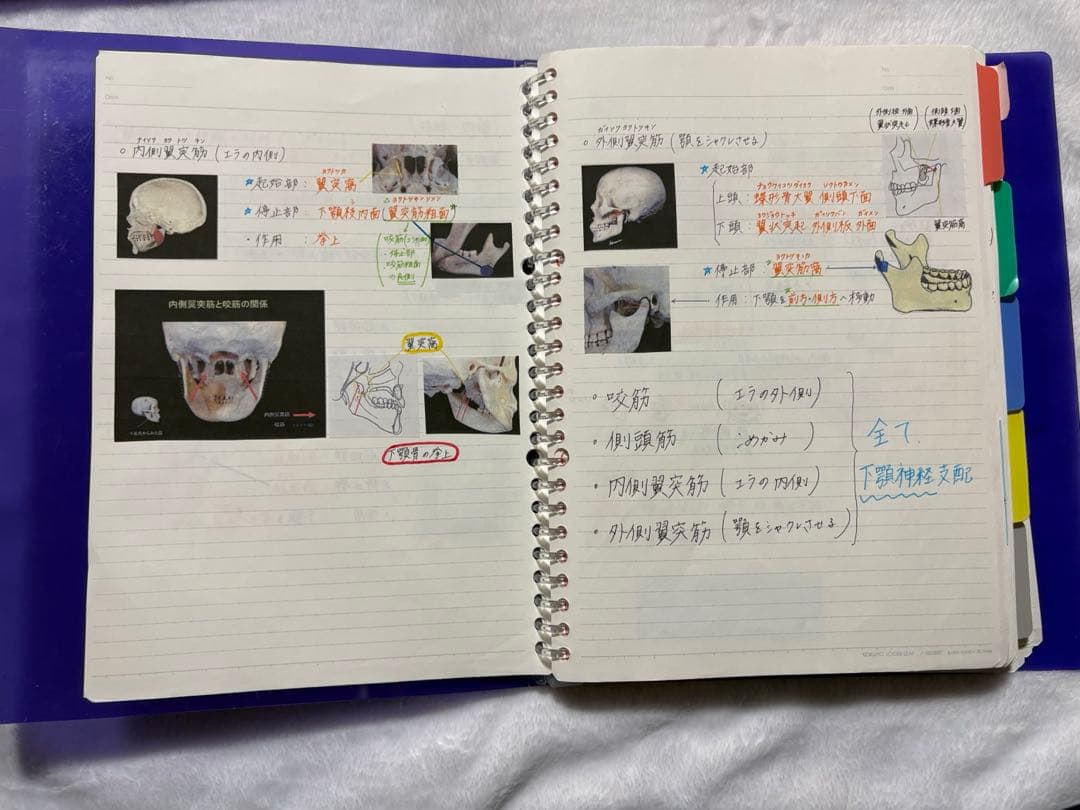 No.
Date
ナイソク ヨク トツ キン
○ 内側翼突筋 (エラの内側)
ヨクトツカ
★ 起始部 : 翼突窩
ヨクトツキンソメン
★ 停止部 : 下顎枝内面 (翼突筋粗面)
・ 作用 : 挙上
停止部
咬筋粗面
の内側
内側翼突筋と咬筋の関係
内側翼突筋
咬筋
翼突窩
下顎骨の挙上
ガイソク ヨクトツキン
○ 外側翼突筋 (顎をシャクレさせる)
外側板 外面
翼状突起
側頭下面
蝶形骨大翼
★ 起始部
チョウケイコツダイヨク ソクトウカメン
上頭 : 蝶形骨大翼 側頭下面
ヨクジョウトッキ ガイソクバン ガイメン
下頭 : 翼状突起 外側板 外面
翼突筋窩
ヨクトツキンカ
★ 停止部 : 翼突筋窩
作用 : 下顎を前方・側方へ移動
・ 咬筋 (エラの外側)
・ 側頭筋 (こめかみ)
・ 内側翼突筋 (エラの内側)
・ 外側翼突筋 (顎をシャクレさせる)
全て、
下顎神経支配
KOKUYO LOOSE-LEAF